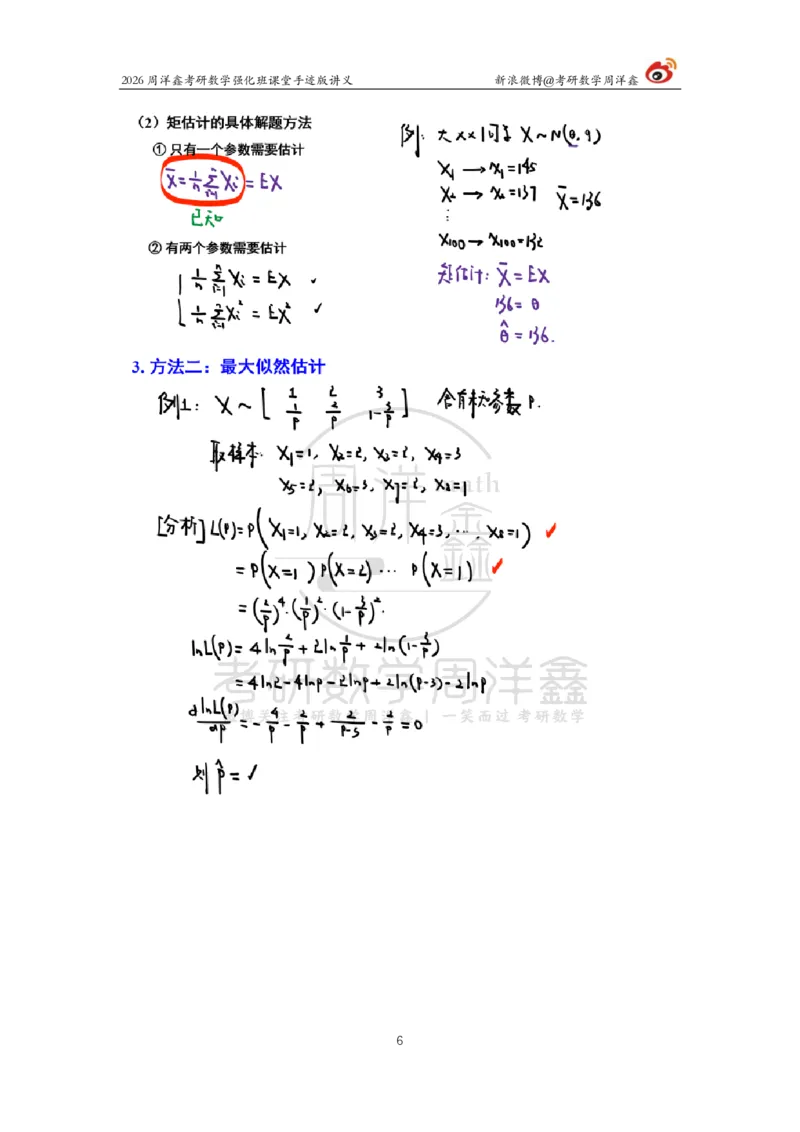 2026 周洋鑫考研数学强化班课堂手迹版讲义 新浪微博@考研数学周洋鑫
(2)矩估计的具体解题方法
① 只有一个参数需要估计
X̄ = 1/n ∑_{i=1}^{n} Xi = EX
已知
② 有两个参数需要估计
1/n ∑_{i=1}^{n} Xi = EX ✓
1/n ∑_{i=1}^{n} Xi² = EX² ✓
例: 大 xx X ~ N(θ, 9)
X1 → x1 = 145
X2 → x2 = 137 X̄ = 136
⋮
X100 → x100 = 132
矩估计: X̄ = EX
136 = θ
θ̂ = 136.
3. 方法二:最大似然估计
例1: X ~ [1 2 3; 1/p 2/p 1-3/p] 含有 参数 p.
取样本: X1=1, X2=2, X3=2, X4=3
X5=2, X6=3, X7=2, X8=1
[分析] L(p) = P(X1=1, X2=2, X3=2, X4=3, ⋯, X8=1) ✓
= P(X=1) P(X=2) ⋯ P(X=1) ✓
= (2/p)⁴·(1/p)²·(1-3/p)².
lnL(p) = 4ln 2/p + 2ln 1/p + 2ln(1-3/p)
= 4ln2 - 4lnp - 2lnp + 2ln(p-3) - 2lnp
dlnL(p)/dp = -4/p - 2/p + 2/(p-3) - 2/p = 0
则 p̂ = ✓
周洋鑫
math
考研数学周洋鑫
博关注考研数学周洋鑫 | 一笑而过 考研数学
6